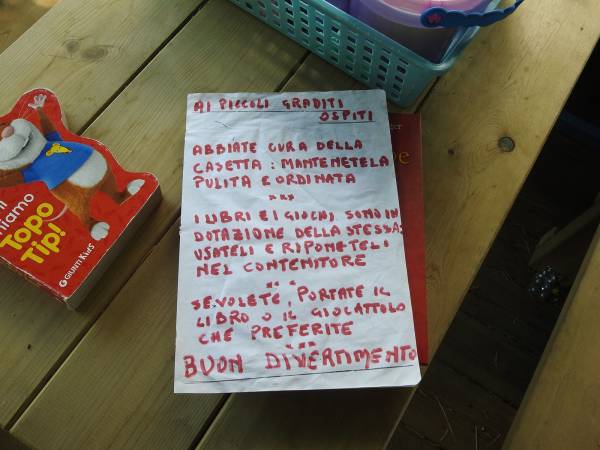 AI PICCOLI GRADITI
OSPITI
ABBIATE CURA DELLA
CASETTA : MANTENETELA
PULITA E ORDINATA
***
I LIBRI E I GIOCHI, SONO IN
DOTAZIONE DELLA STESSA:
USATELI E RIPONETELI
NEL CONTENITORE
***
SE VOLETE, PORTATE IL
LIBRO O IL GIOCATTOLO
CHE PREFERITE
***
BUON DIVERTIMENTO
Topo
Tip!
GIUNTI Kids